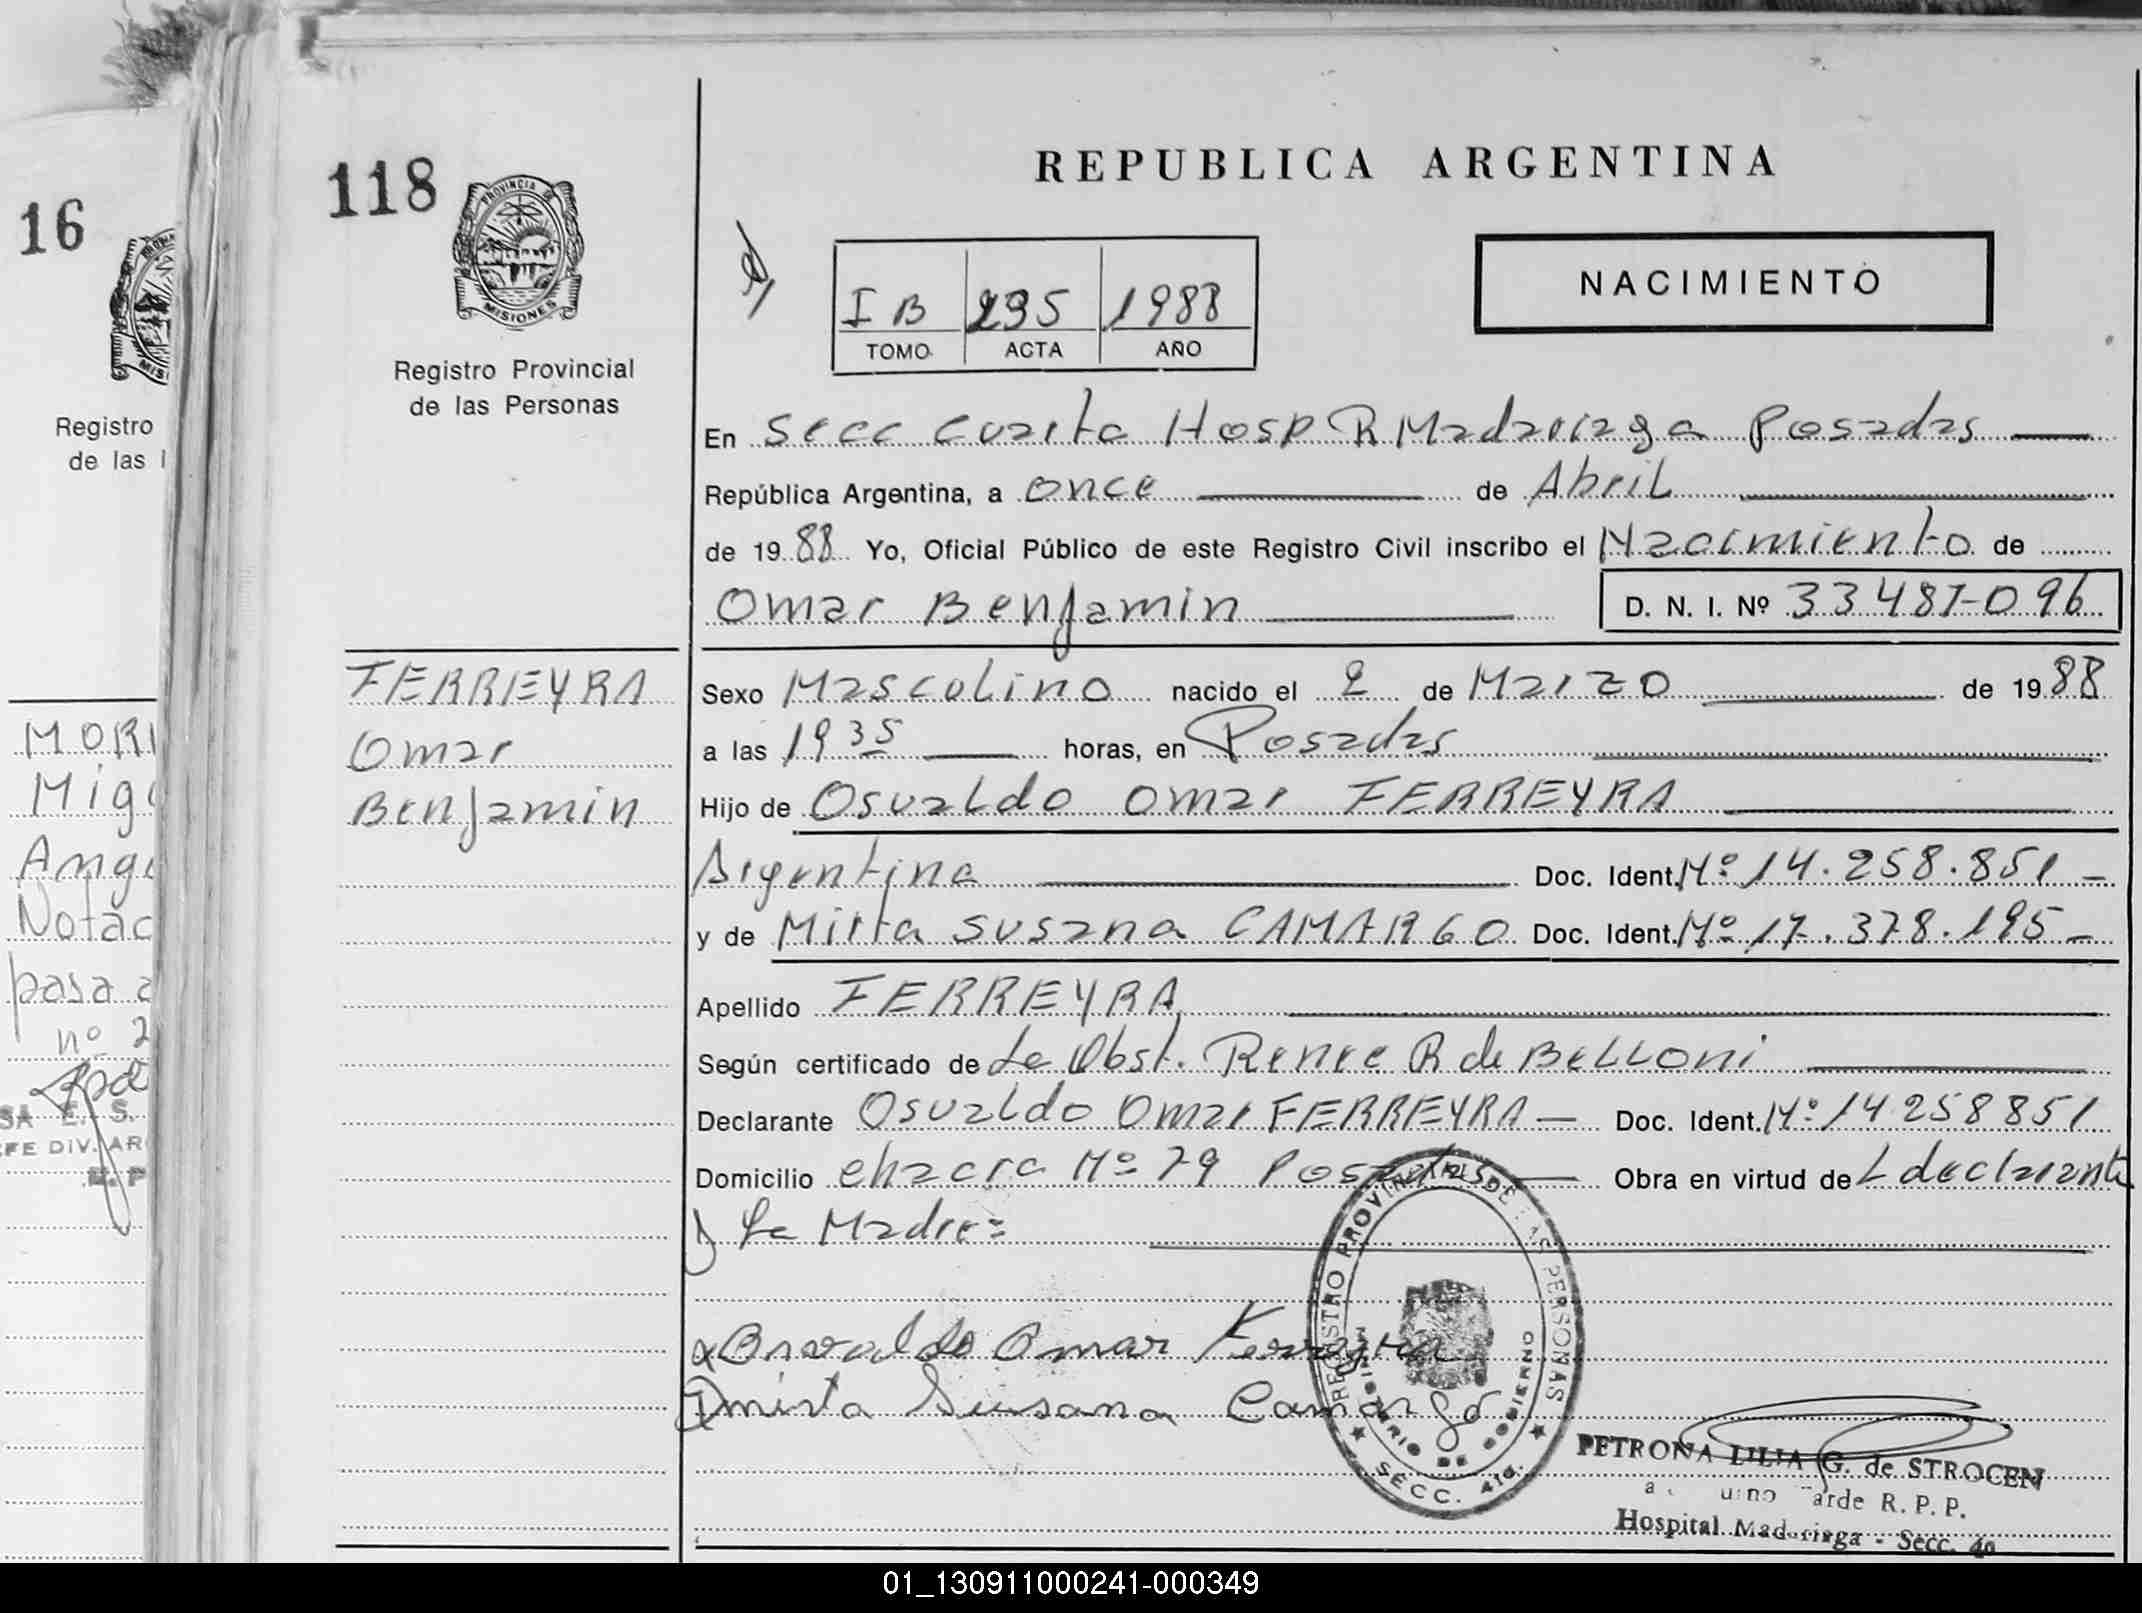 16
Registro
de las
MORI
Migu
Ange
Notac
pasa a
nº 2
118
PROVINCIA DE
MISIONES
Registro Provincial
de las Personas
FERREYRA
Omar
Benjamin
REPUBLICA ARGENTINA
I B 295 1988
TOMO ACTA AÑO
NACIMIENTO
En Secc Cuarta Hosp R Madariaga Posadas
República Argentina, a once de Abril
de 1988 Yo, Oficial Público de este Registro Civil inscribo el Nacimiento de
Omar Benjamin D. N. I. Nº 33487096
Sexo Masculino nacido el 2 de Marzo de 1988
a las 1935 horas, en Posadas
Hijo de Osvaldo Omar FERREYRA
Argentina Doc. Ident. Nº 14.258.851
y de Mirta Susana CAMARGO Doc. Ident. Nº 17.378.195
Apellido FERREYRA
Según certificado de La Obst. Renee R de Belloni
Declarante Osvaldo Omar FERREYRA Doc. Ident. Nº 14258851
Domicilio chacra Nº 79 Posadas Obra en virtud de L declarante
y La Madre=
Osvaldo Omar Ferreyra
mirta Susana Camargo
REGISTRO PROVINCIAL DE LAS PERSONAS
MINISTERIO DE GOBIERNO
SECC. 4ta.
PETRONA LILIA G. de STROCEN
Tarde R. P. P.
Hospital Madariaga - Secc. 4a
01_130911000241-000349